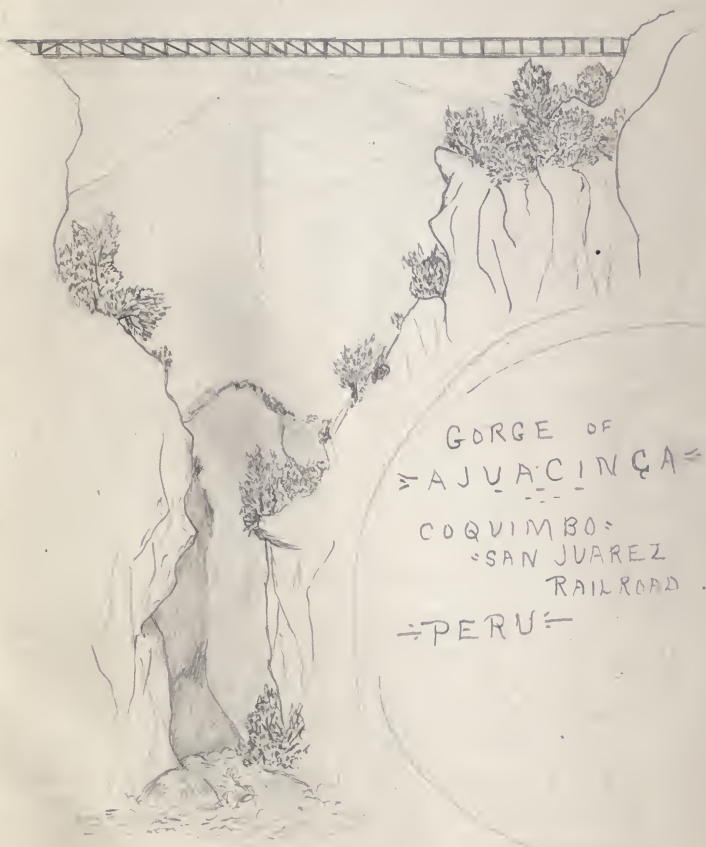 GORGE OF
AJUACINÇA
COQUIMBO
SAN JUAREZ
RAILROAD
PERU